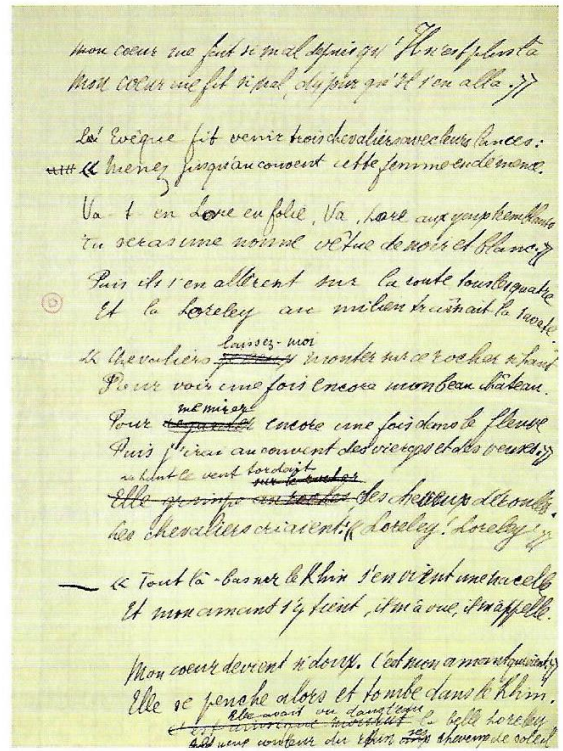 mon cœur me fait si mal depuis qu'Il n'est plus là
mon cœur me fit si mal, du jour qu'Il s'en alla. »
L'Evêque fit venir trois chevaliers avec leurs lances :
« Menez jusqu'au couvent cette femme en démence.
Va-t-en Lore en folie, Va, Lore aux yeux tremblants
Tu seras une nonne vêtue de noir et blanc. »
Puis ils s'en allèrent sur la route tous les quatre
Et la Loreley au milieu traînait la savate.
D
laissez-moi
« Chevaliers monter sur ce rocher si haut
Pour voir une fois encore mon beau château.
me mirer
Pour regarder encore une fois dans le fleuve
Puis j'irai au couvent des vierges et des veuves. »
là haut le vent tordait sur le rocher
Elle grimpe au rocher ses cheveux déroulés
Les chevaliers criaient : « Loreley ! Loreley »
— « Tout là-bas sur le Rhin s'en vient une nacelle
Et mon amant s'y tient, il m'a vue, il m'appelle.
Mon cœur devient si doux. C'est mon amant qui vient »
Elle se penche alors et tombe dans le Rhin.
Elle avait vu dans l'eau
la belle Loreley
yeux couleur du Rhin cheveux de soleil